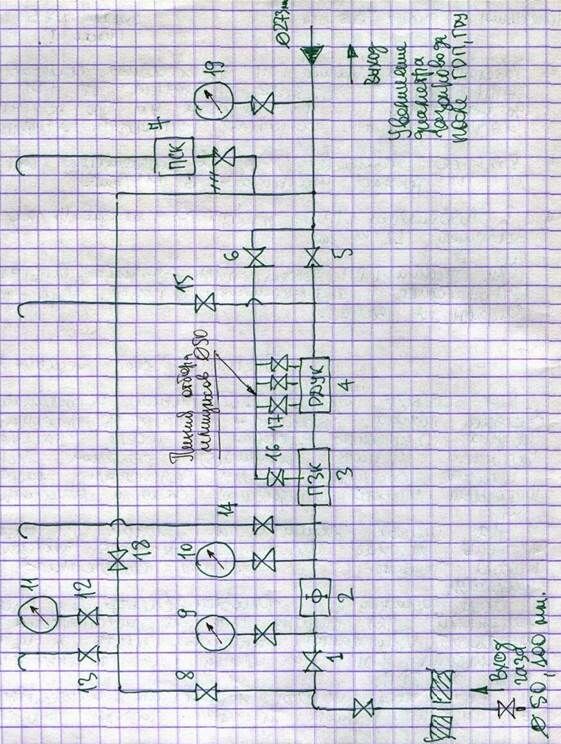 Ø273мм
выход
Увеличение
диаметра
газопровода
после ГРП, ГРУ
19
7
ПСК
6
5
15
Линия отбора
импульсов Ø50
17
РДУК
4
16
ПЗК
3
14
18
10
11
12
13
9
Ф
2
8
1
Вход
газа
Ø 50, 100 мм.